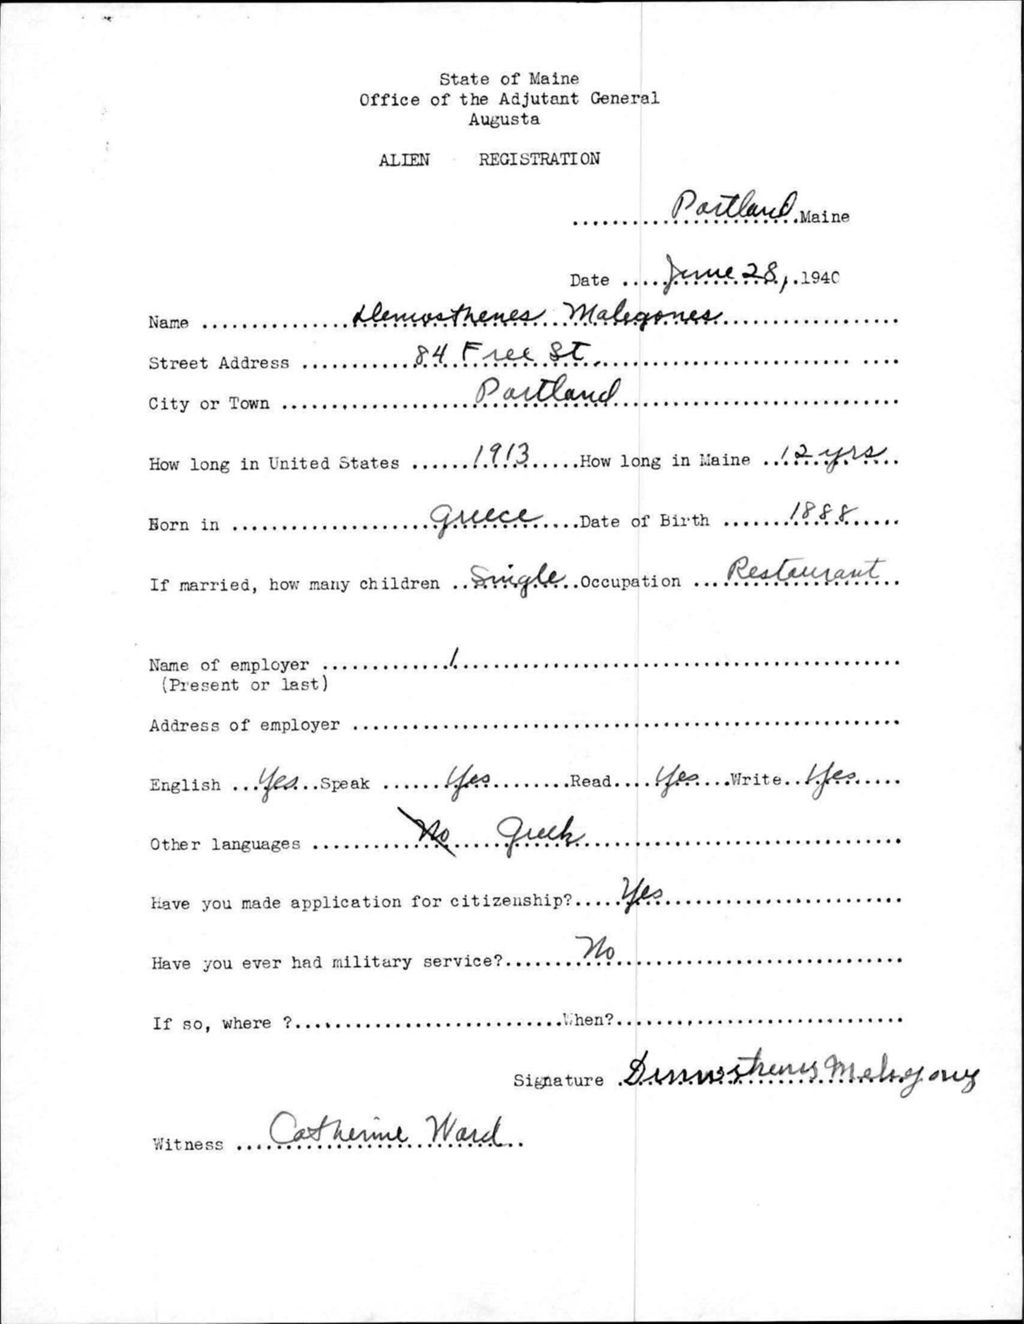 State of Maine
Office of the Adjutant General
Augusta
ALIEN REGISTRATION
Portland Maine
Date June 28, 1940
Name Demosthenes Malegones
Street Address 84 Free St.
City or Town Portland
How long in United States 1913 How long in Maine 12 yrs
Born in Greece Date of Birth 1888
If married, how many children Single Occupation Restaurant
Name of employer 1
(Present or last)
Address of employer
English Yes Speak Yes Read Yes Write Yes
Other languages No Greek
Have you made application for citizenship? Yes
Have you ever had military service? No
If so, where ? When?
Signature Demosthenes Malegones
Witness Catherine Ward